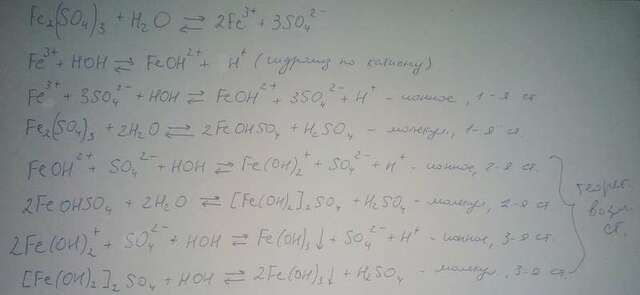 Fe₂(SO₄)₃ + H₂O ⇄ 2Fe³⁺ + 3SO₄²⁻
Fe³⁺ + HOH ⇄ FeOH²⁺ + H⁺ (гидролиз по катиону)
Fe³⁺ + 3SO₄²⁻ + HOH ⇄ FeOH²⁺ + 3SO₄²⁻ + H⁺ - ионное, 1-я ст.
Fe₂(SO₄)₃ + 2H₂O ⇄ 2FeOHSO₄ + H₂SO₄ - молекул., 1-я ст.
FeOH²⁺ + SO₄²⁻ + HOH ⇄ Fe(OH)₂⁺ + SO₄²⁻ + H⁺ - ионное, 2-я ст.
2FeOHSO₄ + 2H₂O ⇄ [Fe(OH)₂]₂SO₄ + H₂SO₄ - молекул, 2-я ст.
2Fe(OH)₂⁺ + SO₄²⁻ + HOH ⇄ Fe(OH)₃↓ + SO₄²⁻ + H⁺ - ионное, 3-я ст.
[Fe(OH)₂]₂SO₄ + HOH ⇄ 2Fe(OH)₃↓ + H₂SO₄ - молекул, 3-я ст.
теорет.
возм.
ст.